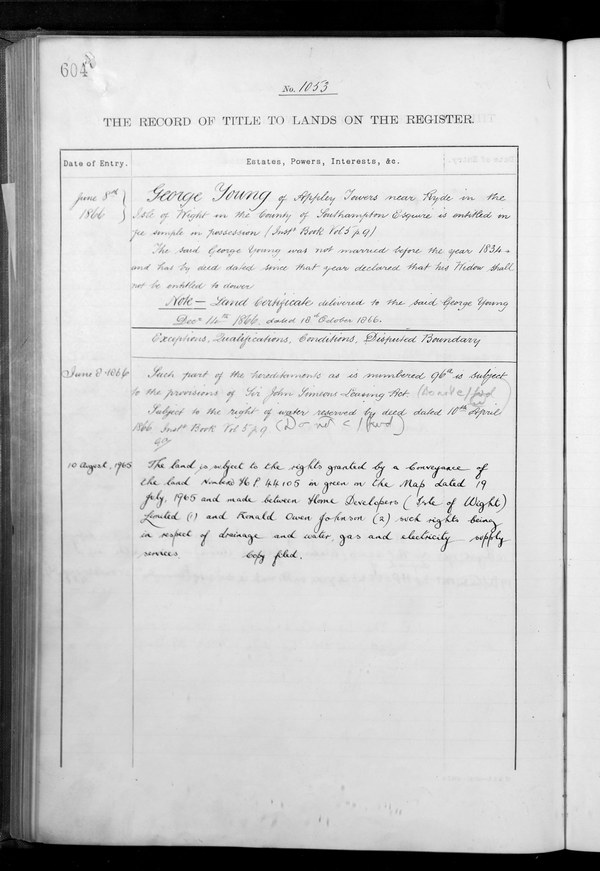 604
No. 1053
THE RECORD OF TITLE TO LANDS ON THE REGISTER.
Date of Entry.
Estates, Powers, Interests, &c.
June 8th 1866
George Young of Appley Towers near Ryde in the
Isle of Wight in the County of Southampton Esquire is entitled in
fee simple in possession (Inst Book Vol 5 p 9)
The said George Young was not married before the year 1834
and has by deed dated since that year declared that his Widow shall
not be entitled to dower
Note — Land Certificate delivered to the said George Young
14th 1866, dated 18th October 1866.
Exceptions, Qualifications, Conditions, Disputed Boundary
June 8 1866
Such part of the hereditaments as is numbered 96a is subject
to the provisions of Sir John Simeons Leasing Act. (Do not c/fwd)
Subject to the right of water reserved by deed dated 10th April
1866 Inst Book Vol 5 p 9 (Do not c/fwd)
10 August, 1965
The land is subject to the rights granted by a Conveyance of
the land numbered H P 44105 in green on the Map dated 19
July, 1965 and made between Home Developers (Isle of Wight)
Limited (1) and Ronald Owen Johnson (2) such rights being
in respect of drainage and water, gas and electricity supply
services. Copy filed.